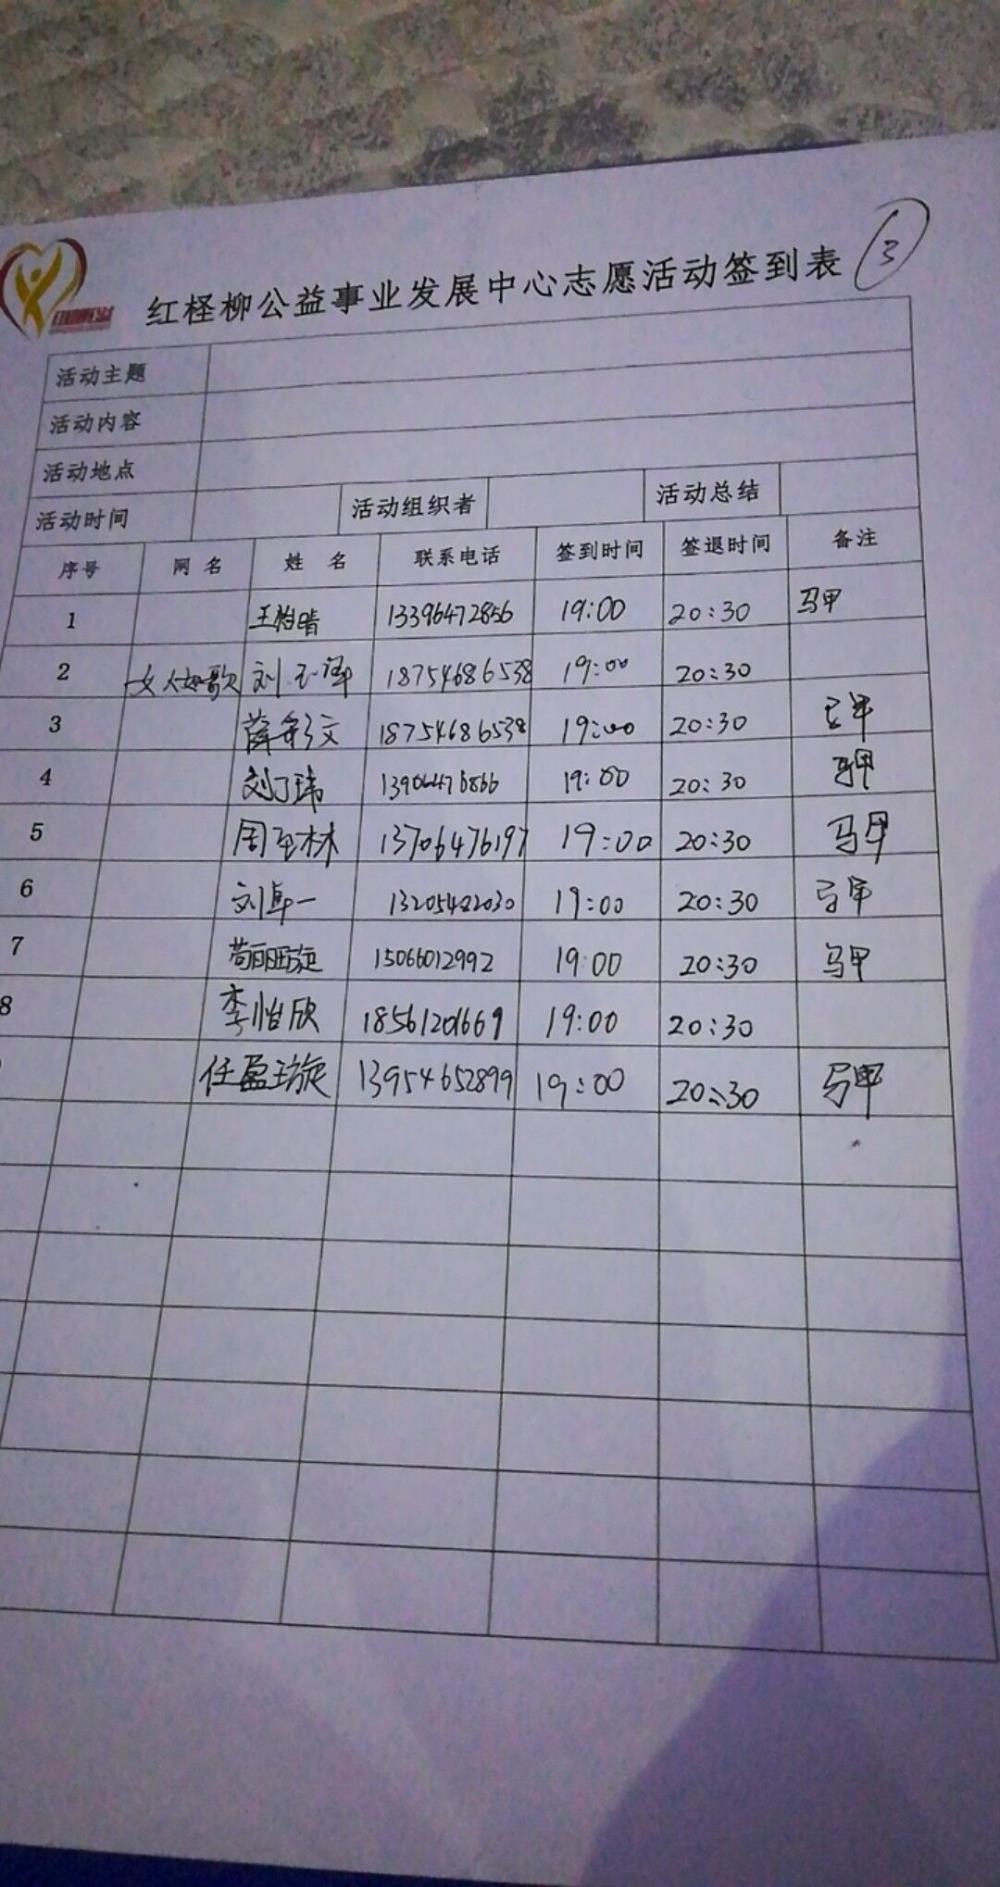 红柽柳公益事业发展中心志愿活动签到表 3
活动主题
活动内容
活动地点
活动时间 活动组织者 活动总结
序号 网名 姓名 联系电话 签到时间 签退时间 备注
1 王怡晴 13396472856 19:00 20:30 马甲
2 女人如歌 刘玉 18754686538 19:00 20:30
3 薛彩文 18754686538 19:00 20:30 马甲
4 刘丁玮 13906476866 19:00 20:30 马甲
5 周至林 13706476197 19:00 20:30 马甲
6 刘卓一 13205422030 19:00 20:30 马甲
7 苟丽旋 15066012992 19:00 20:30 马甲
8 李怡欣 18561201669 19:00 20:30
任盈璇 13954652899 19:00 20:30 马甲